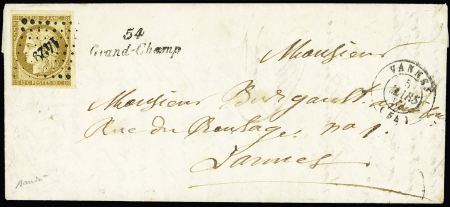 54
Grand-Champ
Monsieur
Monsieur Burgault
Rue du Roulage no 1.
Vannes
VANNES
5
MARS
(54)